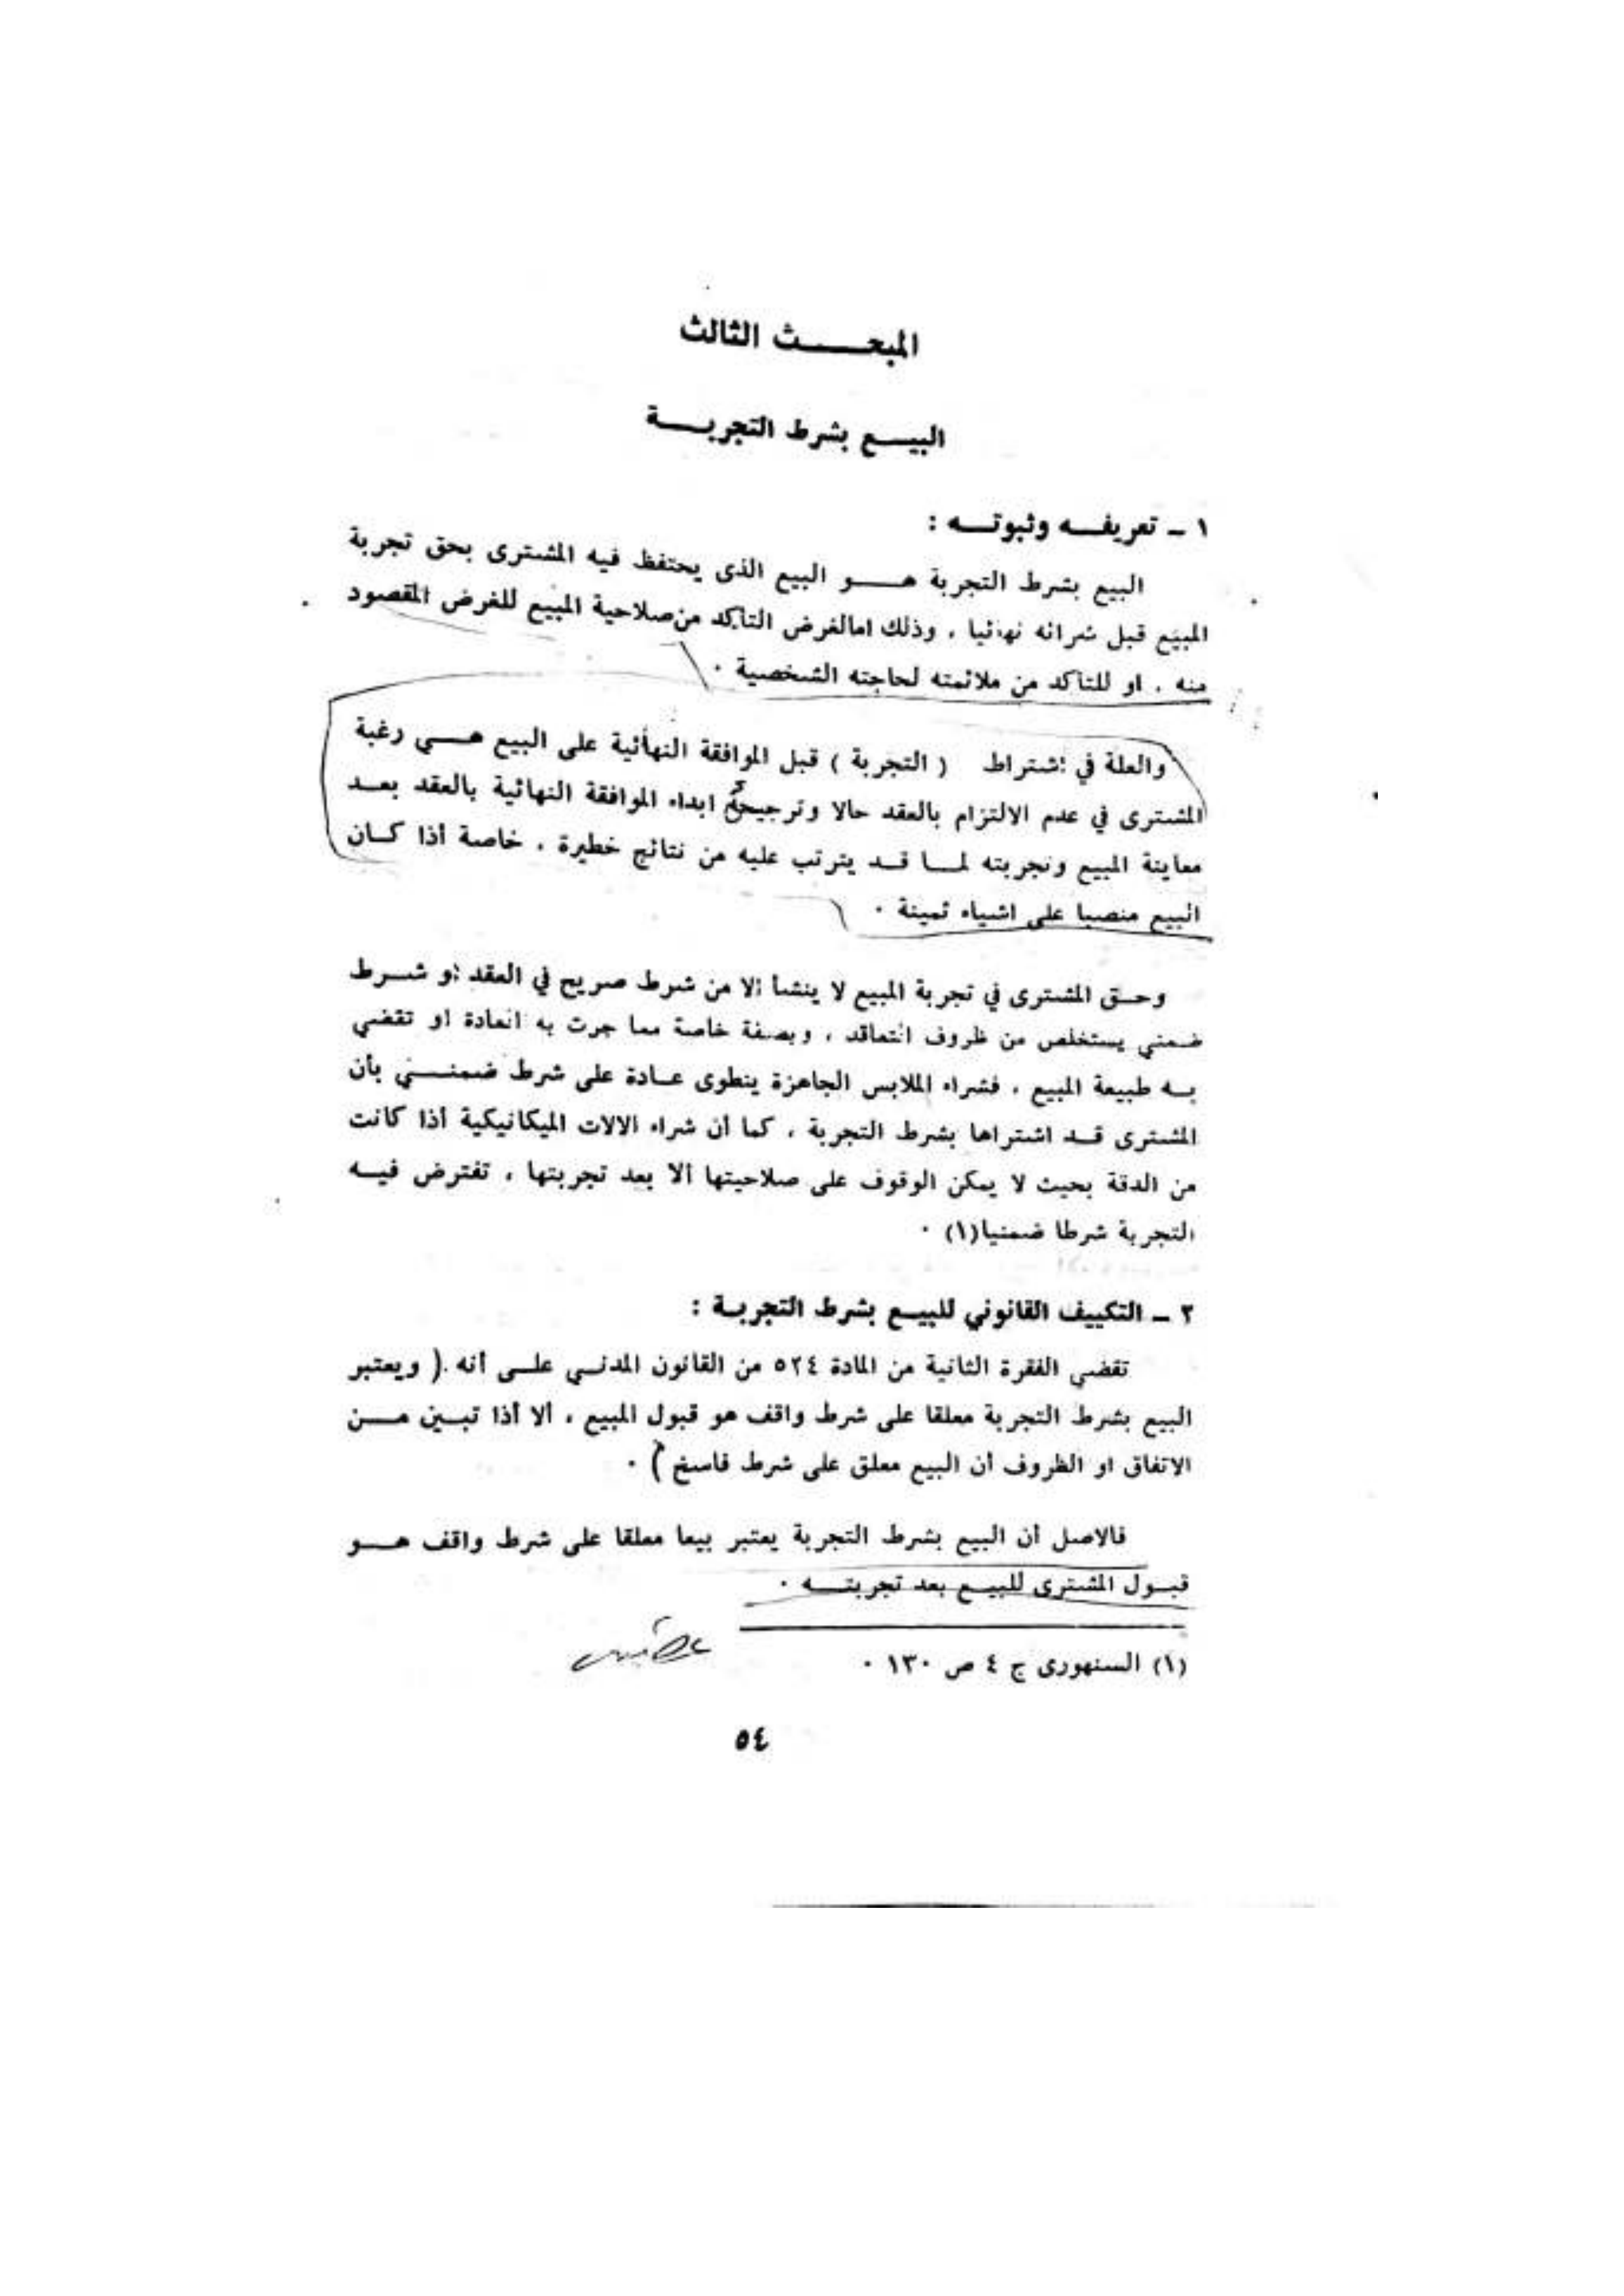 المبحـــــث الثالث
البيـــع بشرط التجربـــة
١ ـ تعريفـــه وثبوتـــه :
البيع بشرط التجربة هـــو البيع الذى يحتفظ فيه المشترى بحق تجربة
المبيع قبل شرائه نهائيا ، وذلك امالغرض التاكد من صلاحية المبيع للغرض المقصود
منه ، او للتاكد من ملائمته لحاجته الشخصية .
والعلة في اشتراط ( التجربة ) قبل الموافقة النهائية على البيع هـــي رغبة
المشترى في عدم الالتزام بالعقد حالا وترجيحه ابداء الموافقة النهائية بالعقد بعـــد
معاينة المبيع وتجربته لمـــا قـــد يترتب عليه من نتائج خطيرة ، خاصة أذا كـــان
البيع منصبا على اشياء ثمينة .
وحـــق المشترى في تجربة المبيع لا ينشأ الا من شرط صريح في العقد او شـــرط
ضمني يستخلص من ظروف التعاقد ، وبصفة خاصة مما جرت به العادة او تقضي
بـــه طبيعة المبيع ، فشراء الملابس الجاهزة ينطوى عـــادة على شرط ضمنـــي بأن
المشترى قـــد اشتراها بشرط التجربة ، كما أن شراء الالات الميكانيكية أذا كانت
من الدقة بحيث لا يمكن الوقوف على صلاحيتها ألا بعد تجربتها ، تفترض فيـــه
التجربة شرطا ضمنيا(١) .
٢ ـ التكييف القانوني للبيـــع بشرط التجربـــة :
تقضي الفقرة الثانية من المادة ٥٢٤ من القانون المدنـــي علـــى أنه ( ويعتبر
البيع بشرط التجربة معلقا على شرط واقف هو قبول المبيع ، ألا أذا تبـــين مـــن
الاتفاق او الظروف أن البيع معلق على شرط فاسخ ) .
فالاصل أن البيع بشرط التجربة يعتبر بيعا معلقا على شرط واقف هـــو
قبـــول المشترى للبيـــع بعد تجربتـــه .
(١) السنهورى ج ٤ ص ١٣٠ .
٥٤